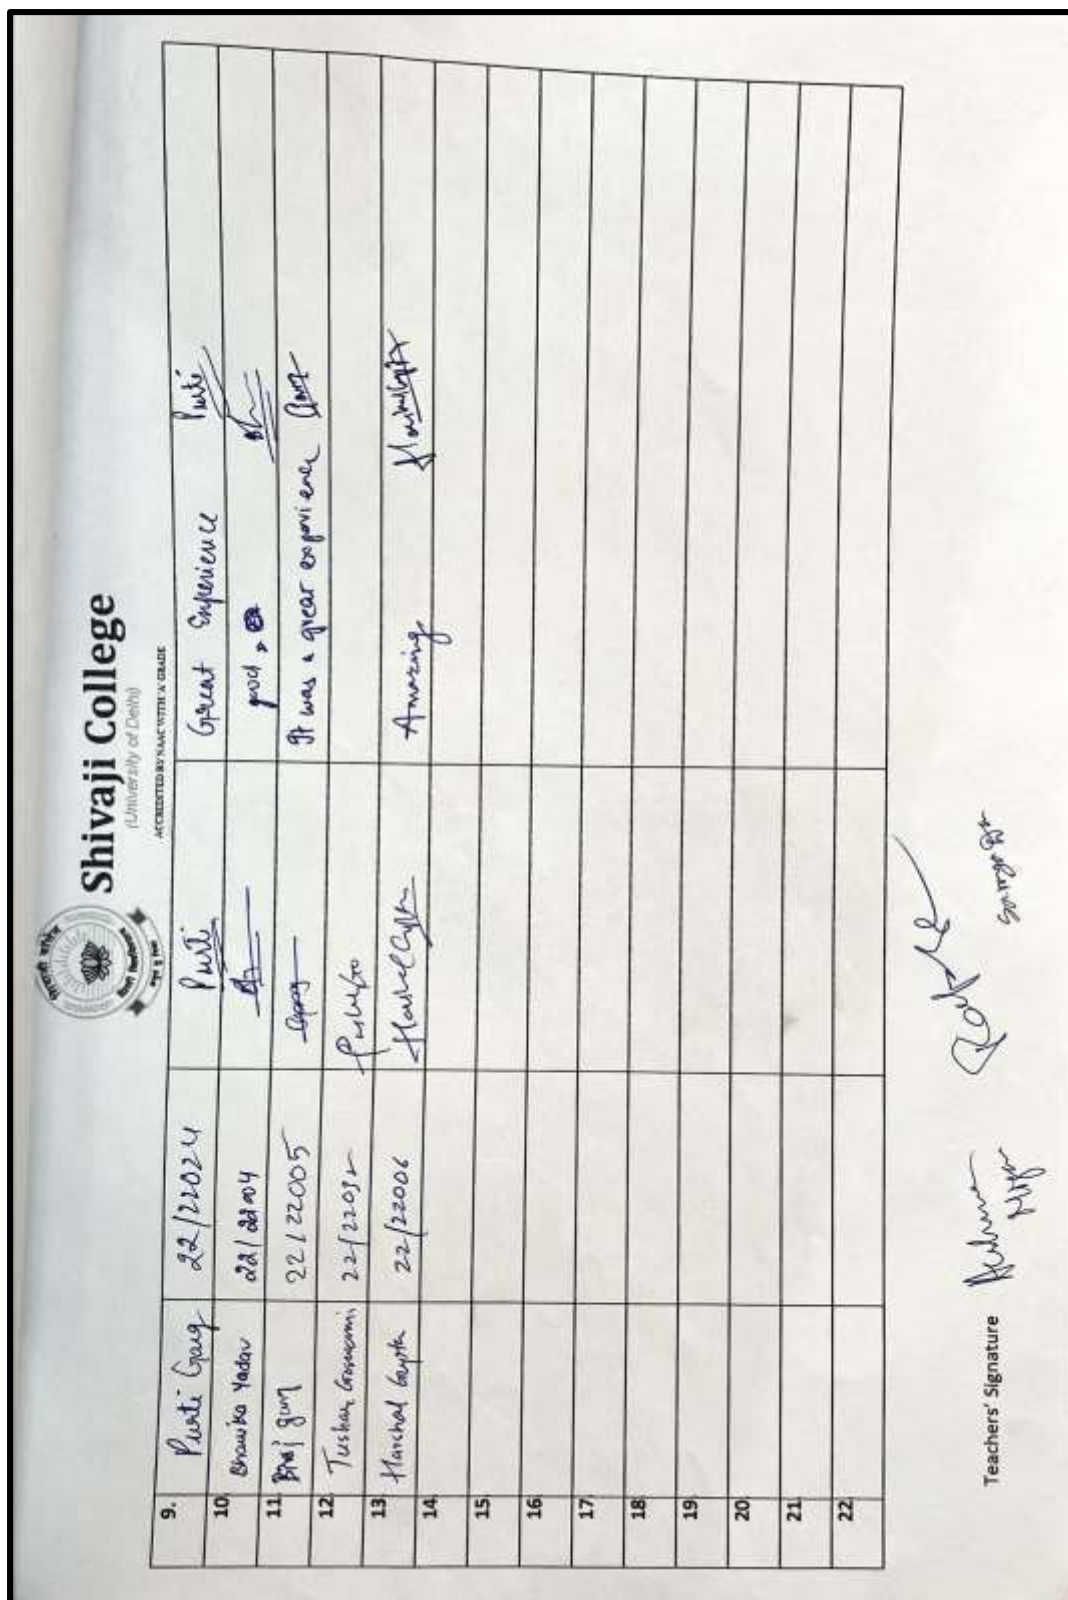 शिवाजी कॉलेज
दिल्ली विश्वविद्यालय
Shivaji College
(University of Delhi)
ACCREDITED BY NAAC WITH 'A' GRADE
9. Purti Garg 22/22024 Purti Great Experience Purti
10. Bhawika Yadav 22/22004 good
11. 22/22005 It was a great experience
12. Tushar Goswami 22/22032
13. Harshal Gupta 22/22006 Harshal Gupta Amazing
14.
15.
16.
17.
18.
19.
20.
21.
22.
Teachers' Signature